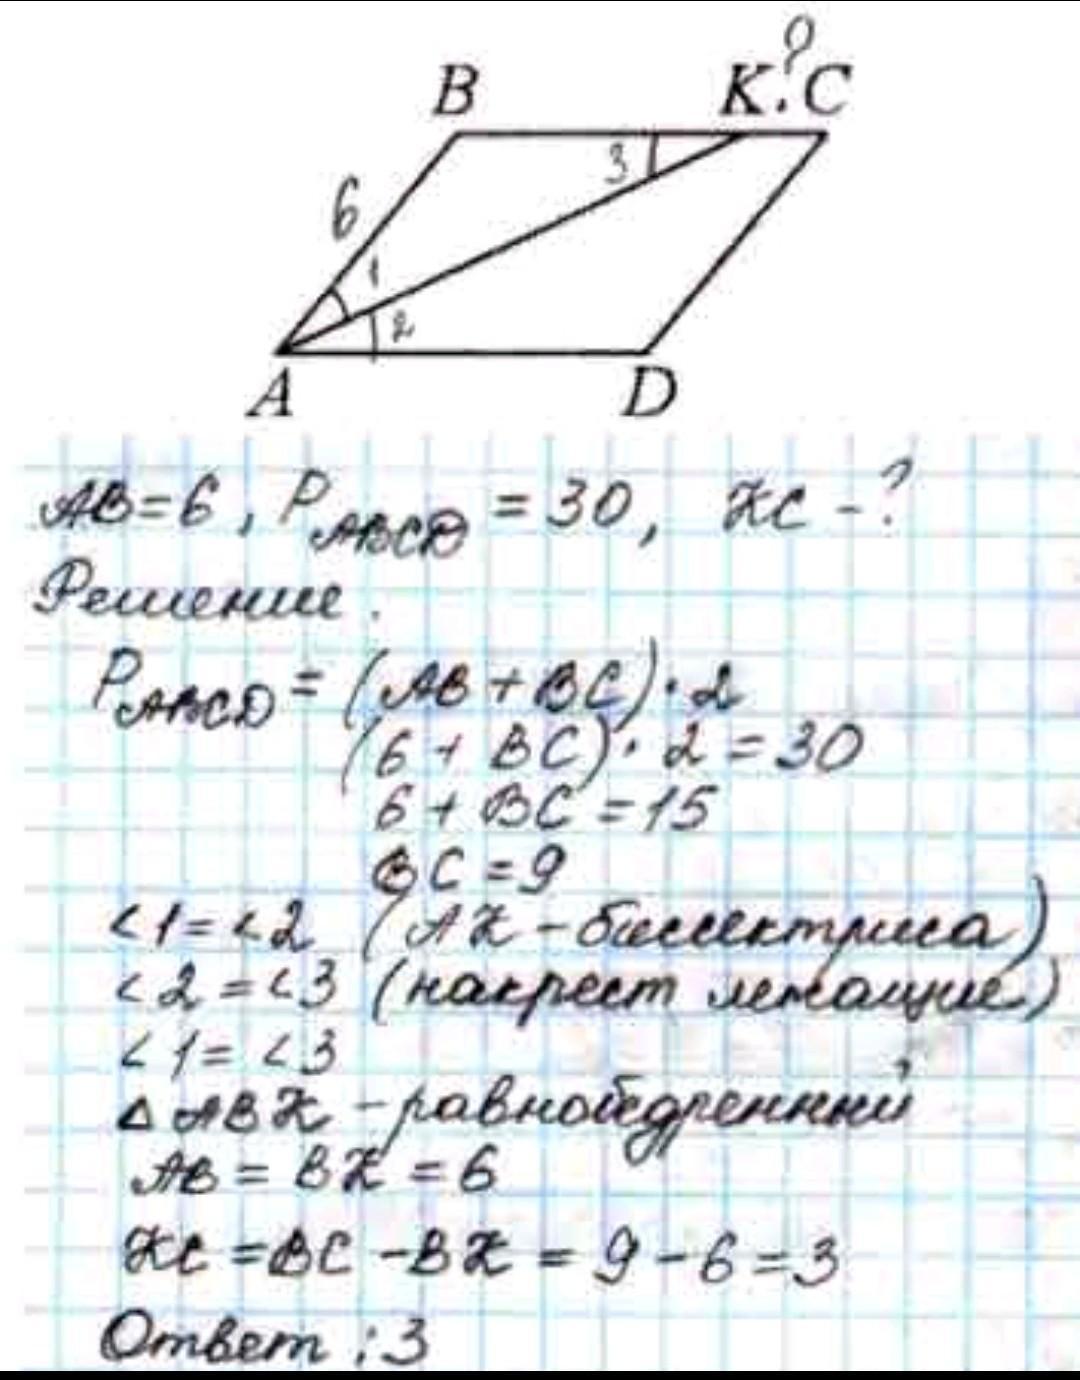 ?
B K. C
6
3
1
2
A D
AB = 6, P ABCD = 30, KC - ?
Решение.
P ABCD = (AB + BC) · 2
(6 + BC) · 2 = 30
6 + BC = 15
BC = 9
<1 = <2 (AK - биссектриса)
<2 = <3 (накрест лежащие)
<1 = <3
Δ ABK - равнобедренный
AB = BK = 6
KC = BC - BK = 9 - 6 = 3
Ответ: 3